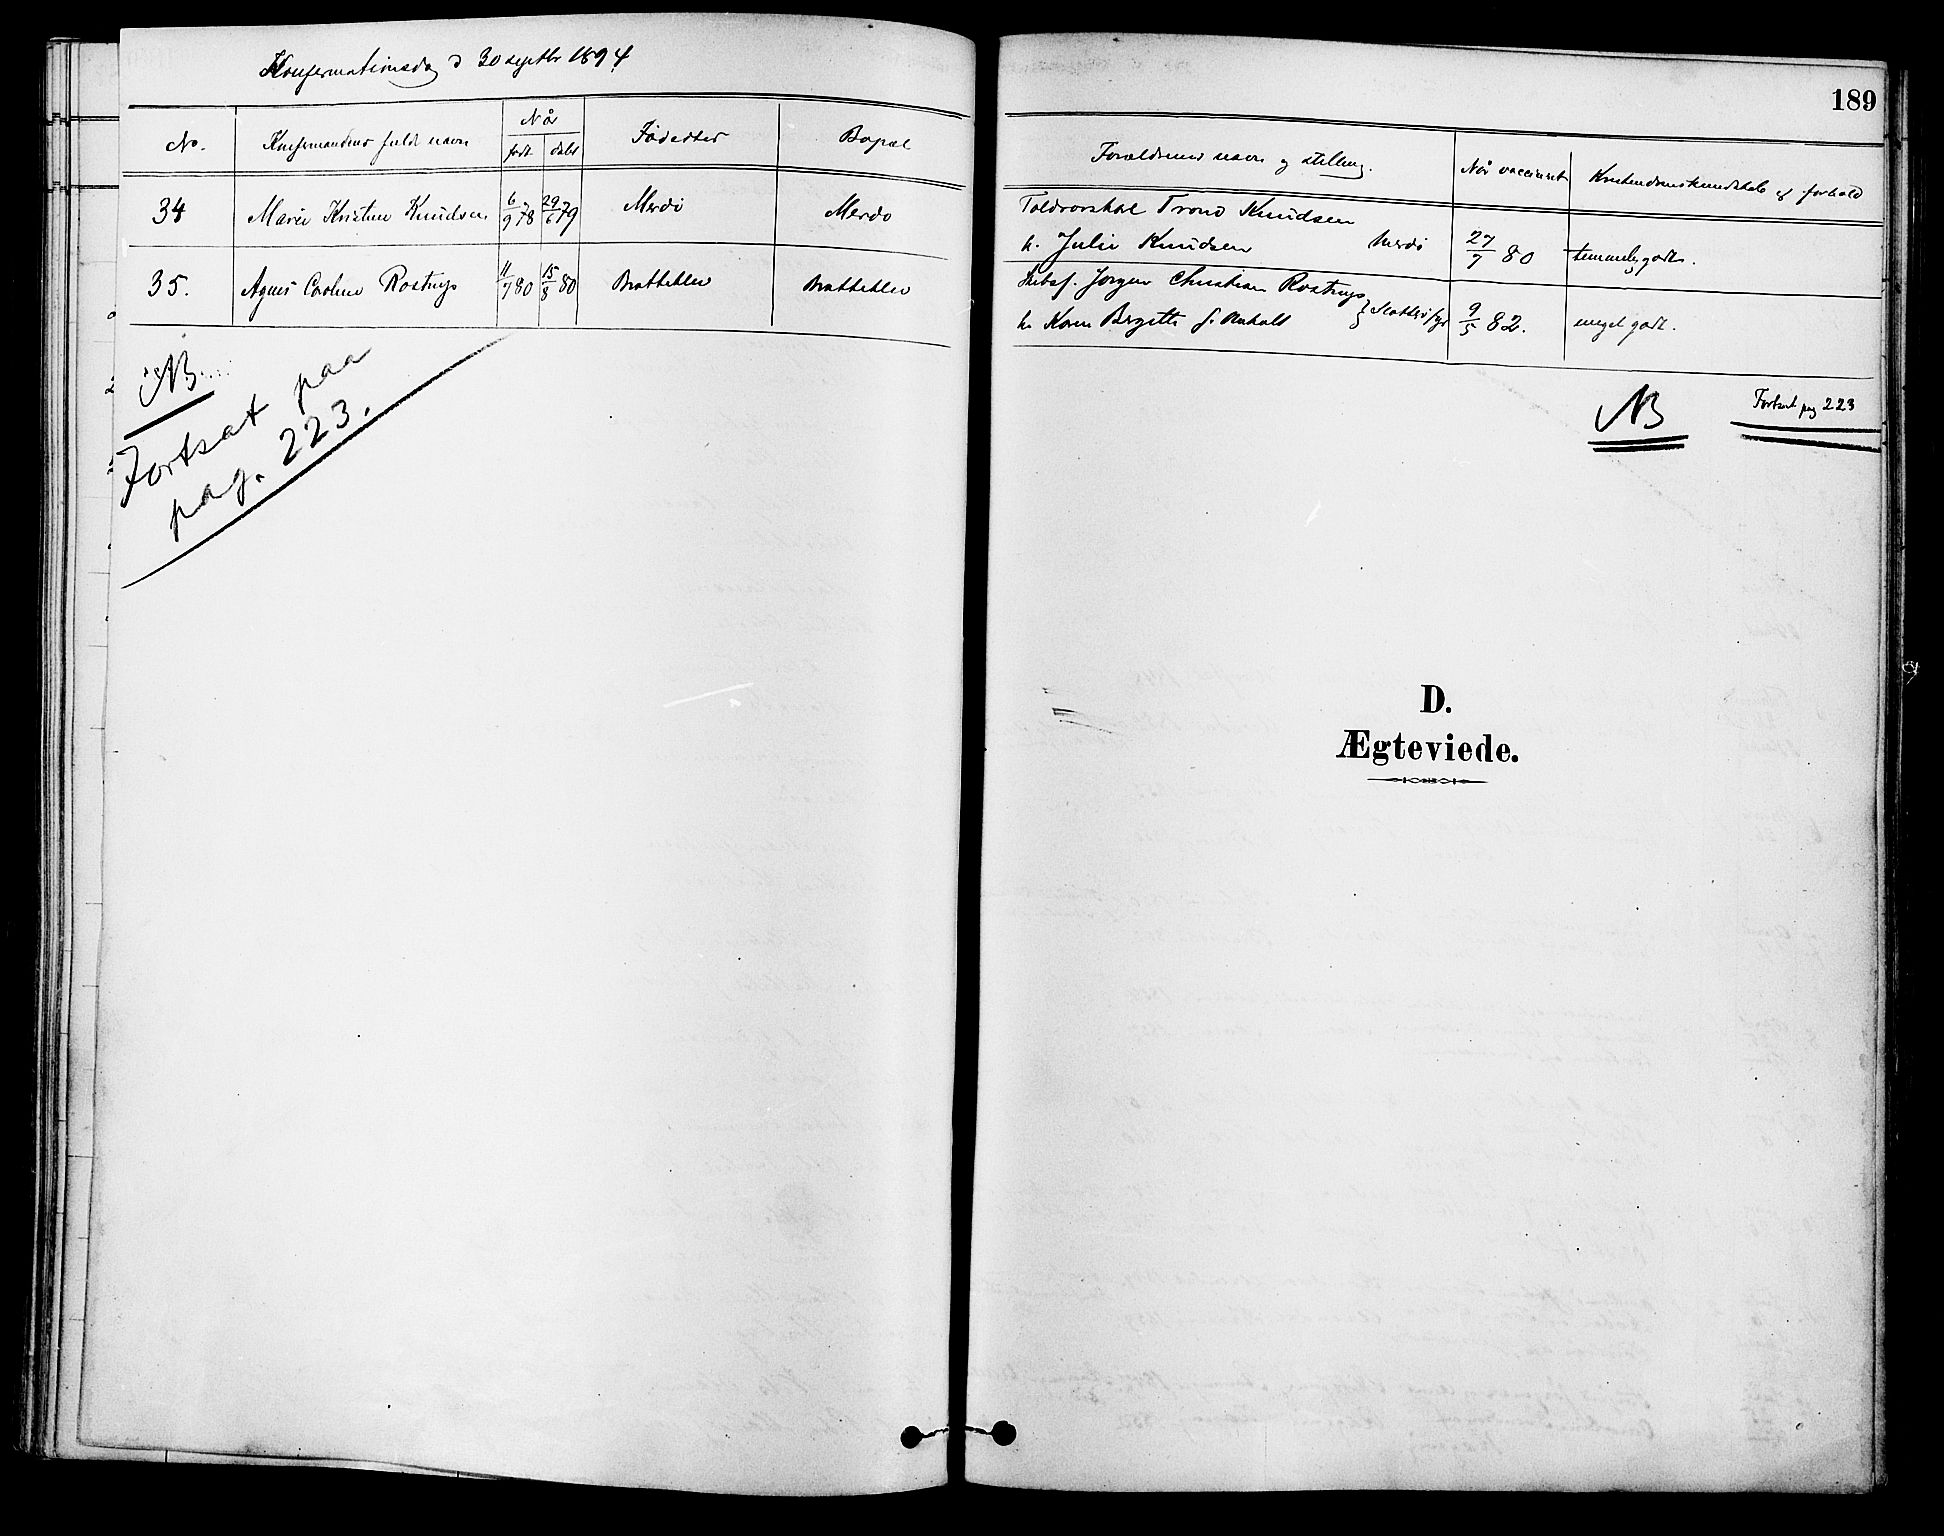 Konfermationsdag d 30 septbr 1894
No. Konfermandens fulde navn Når født døbt Fødested Bopæl
34 Marie Kristine Knudsen 6/9 78 29/6 79 Merdö Merdö
35. Agnes Caroline Rostrup 11/7 80 15/8 80 Brattekler Brattekler
NB
Fortsat paa
pag. 223.
189
Forældrenes navn og stilling. Når vaccineret Kristendomskundskab og forhold
Toldrorskar Trond Knudsen
h. Julie Knudsen Merdö 27/7 80 temmelig godt.
Jörgen Christian Rostrup
h. Karen Birgitte f. 9/5 82. meget godt.
NB Fortsat pag 223
D.
Ægteviede.